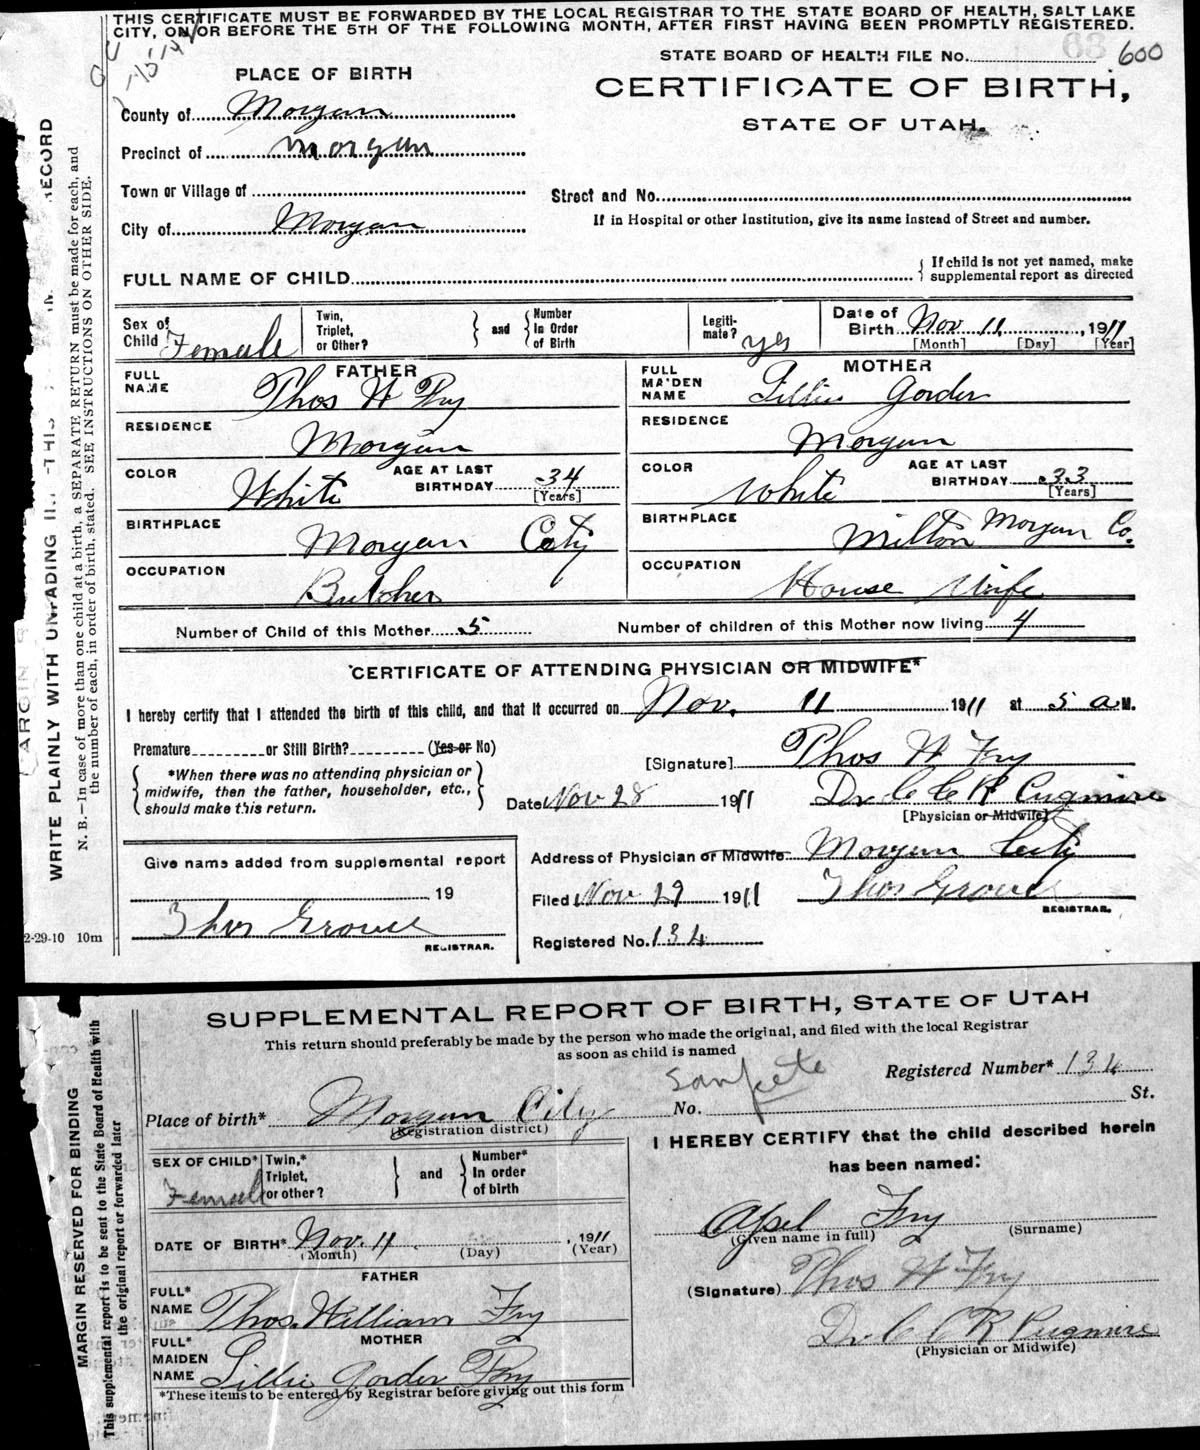 THIS CERTIFICATE MUST BE FORWARDED BY THE LOCAL REGISTRAR TO THE STATE BOARD OF HEALTH, SALT LAKE
CITY, ON OR BEFORE THE 5TH OF THE FOLLOWING MONTH, AFTER FIRST HAVING BEEN PROMPTLY REGISTERED.
STATE BOARD OF HEALTH FILE No. 600
PLACE OF BIRTH
CERTIFICATE OF BIRTH,
STATE OF UTAH.
County of Morgan
Precinct of Morgan
Town or Village of
Street and No.
City of Morgan
If in Hospital or other Institution, give its name instead of Street and number.
FULL NAME OF CHILD
If child is not yet named, make
supplemental report as directed
Sex of Child Female
Twin, Triplet, or Other?
and
Number In Order of Birth
Legiti-mate? yes
Date of Birth Nov 11, 1911
[Month] [Day] [Year]
FATHER
FULL NAME Thos W Fry
RESIDENCE Morgan
COLOR White
AGE AT LAST BIRTHDAY 34 [Years]
BIRTHPLACE Morgan City
OCCUPATION Butcher
MOTHER
FULL MAIDEN NAME Lillie Gorder
RESIDENCE Morgan
COLOR White
AGE AT LAST BIRTHDAY 33 [Years]
BIRTHPLACE Milton Morgan Co.
OCCUPATION House Wife
Number of Child of this Mother 5
Number of children of this Mother now living 4
CERTIFICATE OF ATTENDING PHYSICIAN OR MIDWIFE*
I hereby certify that I attended the birth of this child, and that it occurred on Nov. 11 1911 at 5 a M.
Premature or Still Birth? (Yes or No)
*When there was no attending physician or
midwife, then the father, householder, etc.,
should make this return.
[Signature] Thos W Fry
Date Nov 28 1911
Dr C C R Pugmire
[Physician or Midwife]
Address of Physician or Midwife Morgan City
Filed Nov 29 1911 Thos Grouse
REGISTRAR.
Registered No. 134
Give name added from supplemental report
19
Thos Grouse
REGISTRAR.
2-29-10 10m
WRITE PLAINLY WITH UNFADING
THIS
RECORD
N. B.—In case of more than one child at a birth, a SEPARATE RETURN must be made for each, and
the number of each, in order of birth, stated. SEE INSTRUCTIONS ON OTHER SIDE.
SUPPLEMENTAL REPORT OF BIRTH, STATE OF UTAH
This return should preferably be made by the person who made the original, and filed with the local Registrar
as soon as child is named
Sanpete
Registered Number* 134
Place of birth* Morgan City
(Registration district)
No. St.
SEX OF CHILD* Female
Twin,* Triplet, or other?
and
Number* In order of birth
DATE OF BIRTH* Nov. 11, 1911
(Month) (Day) (Year)
FATHER
FULL* NAME Thos. William Fry
MOTHER
FULL* MAIDEN NAME Lillie Gorder Fry
*These items to be entered by Registrar before giving out this form
I HEREBY CERTIFY that the child described herein
has been named:
Fry
(Given name in full) (Surname)
(Signature) Thos W Fry
Dr C C R Pugmire
(Physician or Midwife)
MARGIN RESERVED FOR BINDING
This supplemental report is to be sent to the State Board of Health with
the original report or forwarded later